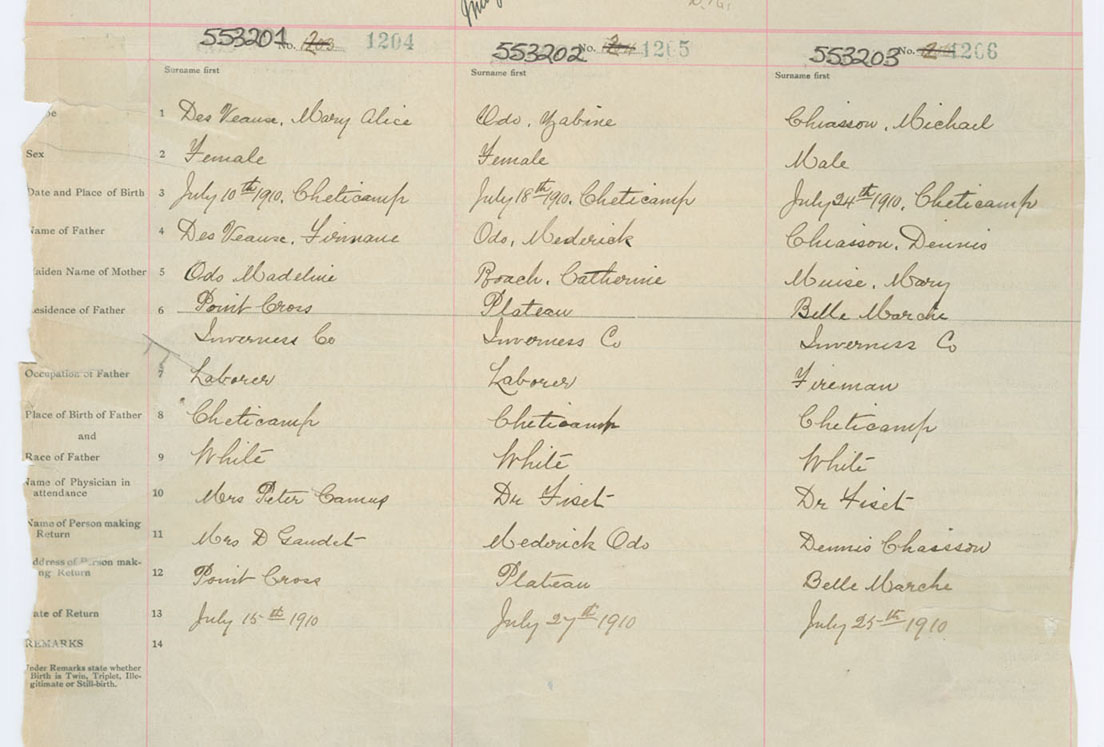 553201 No. 203 1204
553202 No. 1205
553203 No. 1206
Surname first Surname first Surname first
1 Des Veause, Mary Alice Odo, Zabine Chiasson, Michael
Sex 2 Female Female Male
Date and Place of Birth 3 July 10th 1910, Cheticamp July 18th 1910, Cheticamp July 24th 1910, Cheticamp
Name of Father 4 Des Veause, Firmane Odo, Mederick Chiasson, Dennis
aiden Name of Mother 5 Odo Madeline Roach, Catherine Muise, Mary
esidence of Father 6 Point Cross Plateau Belle Marche
Inverness Co Inverness Co Inverness Co
Occupation of Father 7 Laborer Laborer Fireman
Place of Birth of Father 8 Cheticamp Cheticamp Cheticamp
and
Race of Father 9 White White White
Name of Physician in
attendance 10 Mrs Peter Camus Dr Fiset Dr Fiset
Name of Person making
Return 11 Mrs D Gaudet Mederick Odo Dennis Chaisson
ddress of Person mak-
ng Return 12 Point Cross Plateau Belle Marche
ate of Return 13 July 15th 1910 July 27th 1910 July 25th 1910
REMARKS 14
nder Remarks state whether
Birth is Twin, Triplet, Ille-
gitimate or Still-birth.